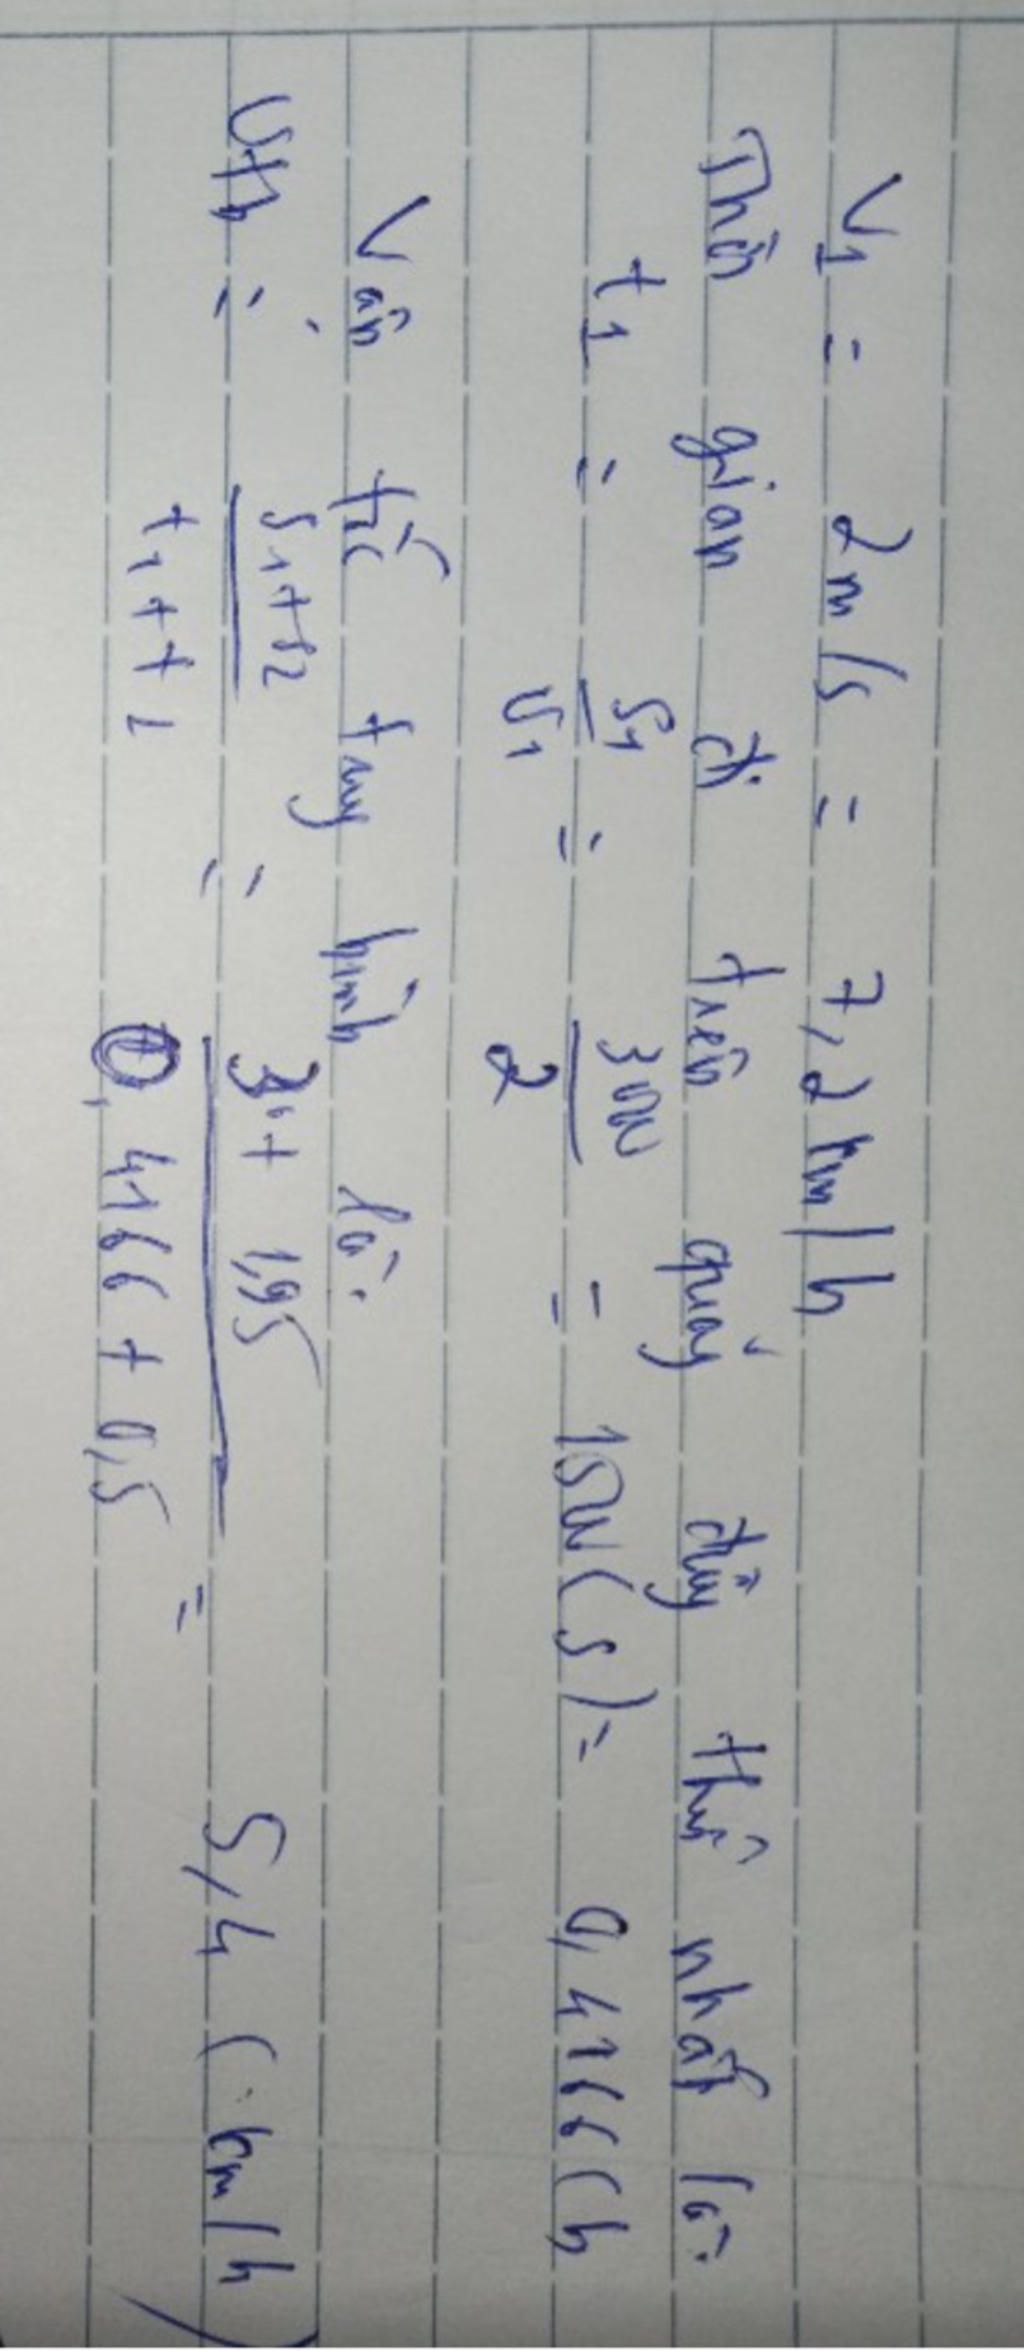 V1 = 2m/s = 7,2 km/h
Thời gian đi trên quãng đường thứ nhất là:
t1 = S1/V1 = 3000/2 = 1500(s) = 0,4166(h
Vận tốc trung bình là:
Vtb = S1+S2/t1+t2 = 3+1,95/0,4166+0,5 = 5,4 (km/h)